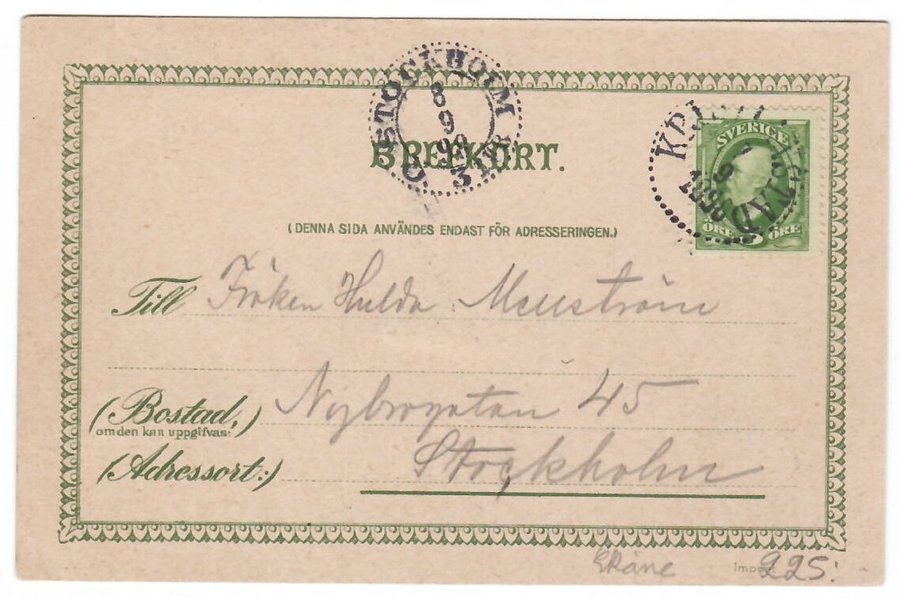 STOCKHOLM
8
9
3 TUR
BREFKORT.
SVERIGE
ÖRE 5 ÖRE
(DENNA SIDA ANVÄNDES ENDAST FÖR ADRESSERINGEN.)
Till Fröken Hulda
Nybrogatan 45
(Bostad,)
om den kan uppgifvas:
Stockholm
(Adressort:)
Skåne
Import
225: